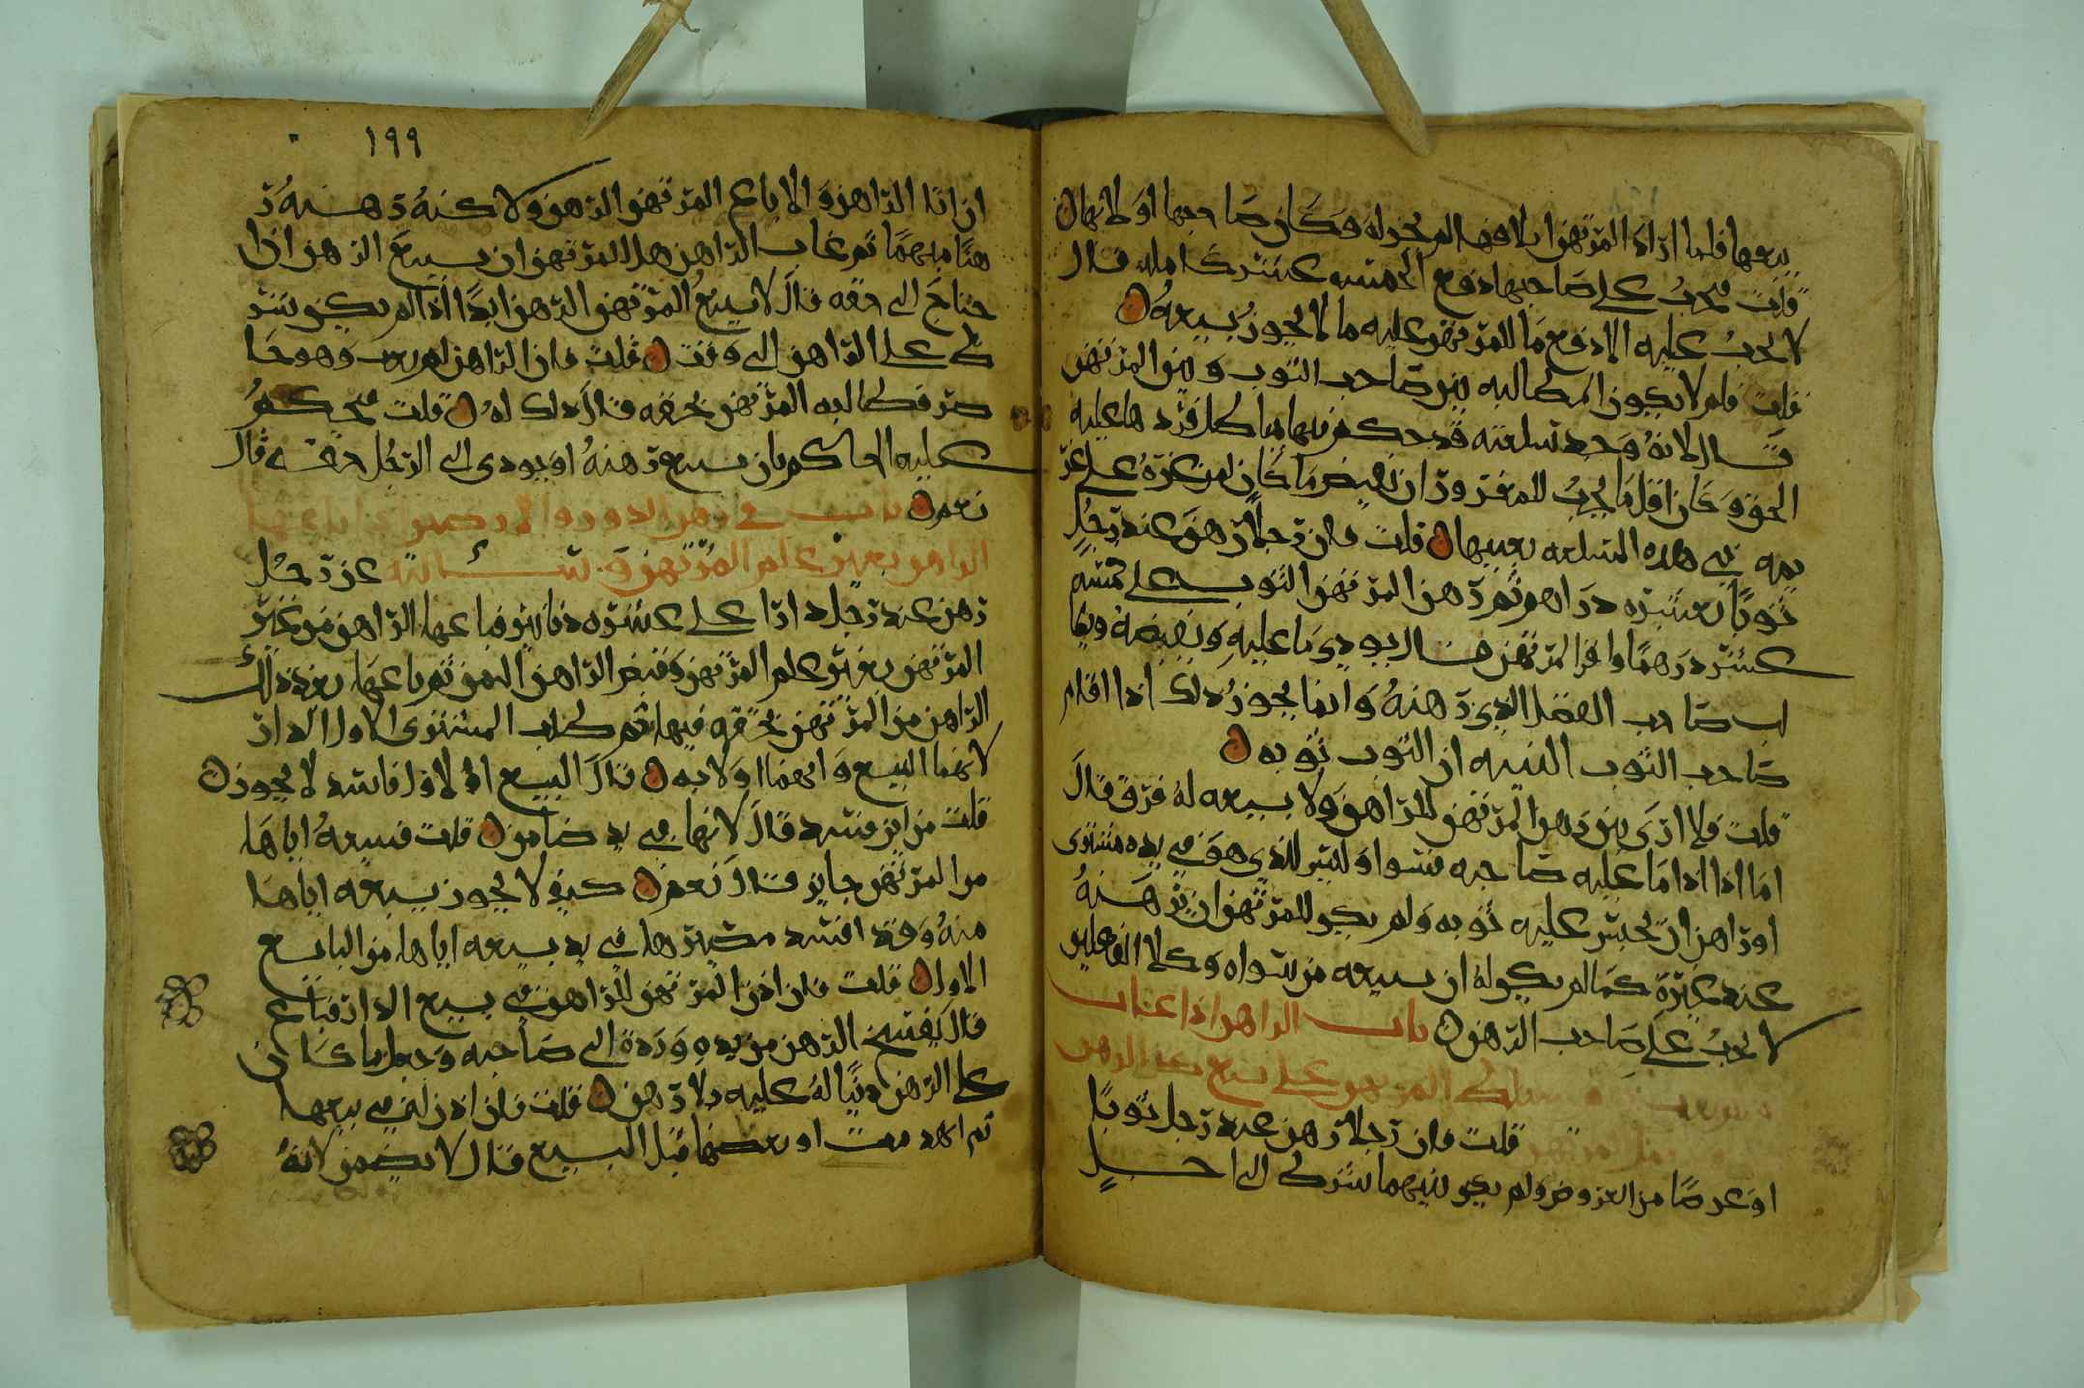 ببيعها فلما اراد المرتهن ايلافها لم يجز له وكان صاحبها اولا بها ن
قلت فيجب على صاحبها دفع الخمسه عشر كامله قال
لا يجب عليه الا دفع ما للمرتهن عليه ما لا يجوز بيعه ن
قلت فلم لا يكون المطالبه بين صاحب الثوب وبين المرتهن
قال لانه وجد سلعته قد حكم فيها بباطل فردها عليه
الحق وكان اقل ما يجب للمغرور ان يقبض ما كان له من غره على غر
يمه في هذه السلعه بعينها ن قلت فان رجلا رهن عند رجل
ثوبا بعشره دراهم ثم رهن المرتهن الثوب على خمسه
عشر درهما وافر المرتهن قال يودي ما عليه ويقبضه ويطا
لب صاحب الفضل الذي رهنه وانما يجوز ذلك اذا اقام
صاحب الثوب البينه ان الثوب ثوبه ن
قلت فلا ارى بين رهن المرتهن للراهن ولا بيعه له فرق قال
اما اذا ادا ما عليه صاحبه فسوا وليس للذي هو في يده مشترى
او راهن ان يحبس عليه ثوبه ولم يكن للمرتهن ان يرهنه
عند غيره كما لم يكن له ان يبيعه من سواه وكلا الفعلين
لا يجب على صاحب الرهن ن باب الراهن اذا غاب
المرتهن على بيع الرهن
قلت فان رجلا رهن عند رجل ثوبا
او عرضا من العروض ولم يكن بينهما شرط الى اجل
١٩٩
ان اتا الراهن والا باع المرتهن الرهن ولاكنه رهنه ر
هنا مبهما ثم غاب الراهن هل للمرتهن ان يبيع الرهن اذا
احتاج الى حقه قال لا يبيع المرتهن الرهن ابدا اذا لم يكن شر
ط على الراهن الى وقت ن قلت فان الراهن لم يغب وهو حا
ضر فطالبه المرتهن بحقه قال ذلك له ن قلت فيحكم
عليه الحاكم بان يبيع رهنه او يودي الى الرجل حقه قال
نعم ن باب في رهن الدور والارضين اذا باعها
الراهن بغير علم المرتهن وسالته عن رجل
رهن عند رجل دارا على عشره دنانير فباعها الراهن من غير
المرتهن بغير علم المرتهن وقبض الراهن الثمن ثم باعها بعد ذلك
الراهن من المرتهن بحقه فيها ثم طلب المشترى الاول الدار
لايهما البيع وايهما اولا به ن قال البيع الاول فاسد لا يجوز ن
قلت من اين فسد قال لانها في يد ضامن ن قلت فبيعه اياها
من المرتهن جايز قال نعم ن كيف لا يجوز بيعه اياها
منه وقد افسد مصيرها في يد بيعه اياها من البايع
الاول ن قلت فان اذن المرتهن للراهن في بيع الدار فباع
قال يفسخ الرهن من يده ورده الى صاحبه وجعل ما كان
على الرهن دينا له عليه بلا رهن ن قلت فان اذن له في بيعها
ثم انهدمت او بعضها قبل البيع قال لا يضمن لانه